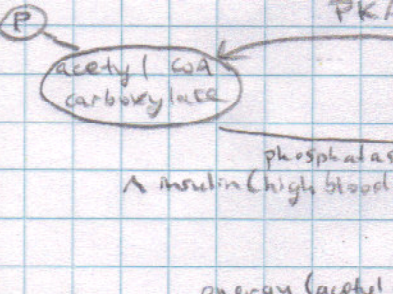 PKA
P
acetyl CoA
carboxylate
phosphatas
↑ insulin (high blood
energy (acetyl